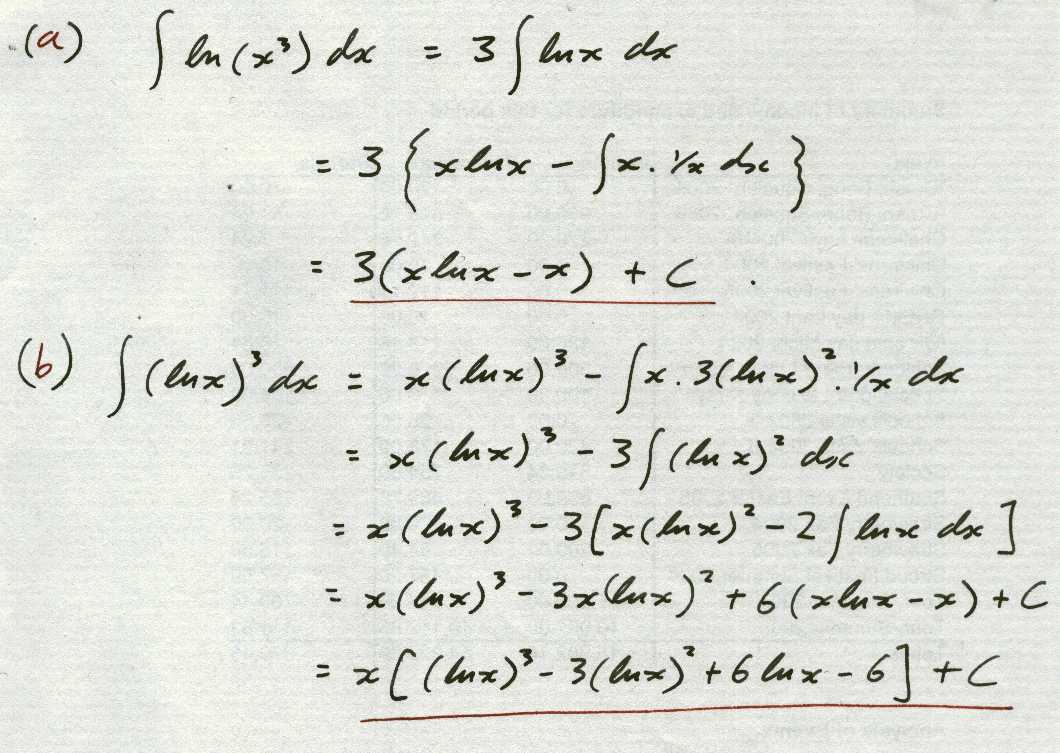 (a) ∫ ln(x³) dx = 3 ∫ lnx dx
= 3 { x lnx − ∫ x . 1/x dx }
= 3(x lnx − x) + C .
(b) ∫ (lnx)³ dx = x (lnx)³ − ∫ x . 3(lnx)² . 1/x dx
= x (lnx)³ − 3 ∫ (ln x)² dx
= x (lnx)³ − 3 [ x(lnx)² − 2 ∫ lnx dx ]
= x (lnx)³ − 3x(lnx)² + 6 (x lnx − x) + C
= x [ (lnx)³ − 3(lnx)² + 6 lnx − 6 ] + C